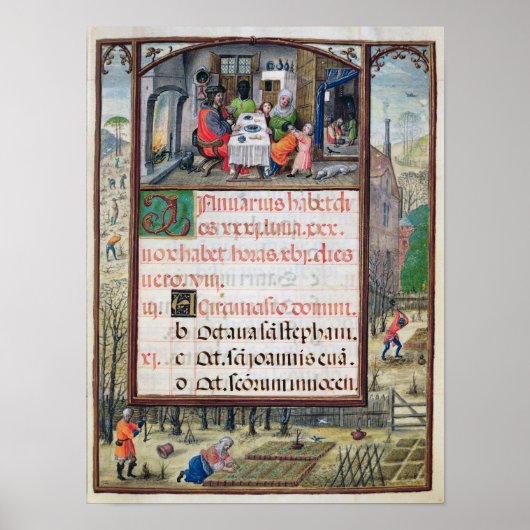 Januarius habet di
es xxxj. luna. xxx.
nox habet horas. xbj. dies
uero. viij.
iij. A Circuncisio domini.
b Octaua scī stephani.
xj. c Oct. scī ioannis euā.
d Oct. scōrum innocen.